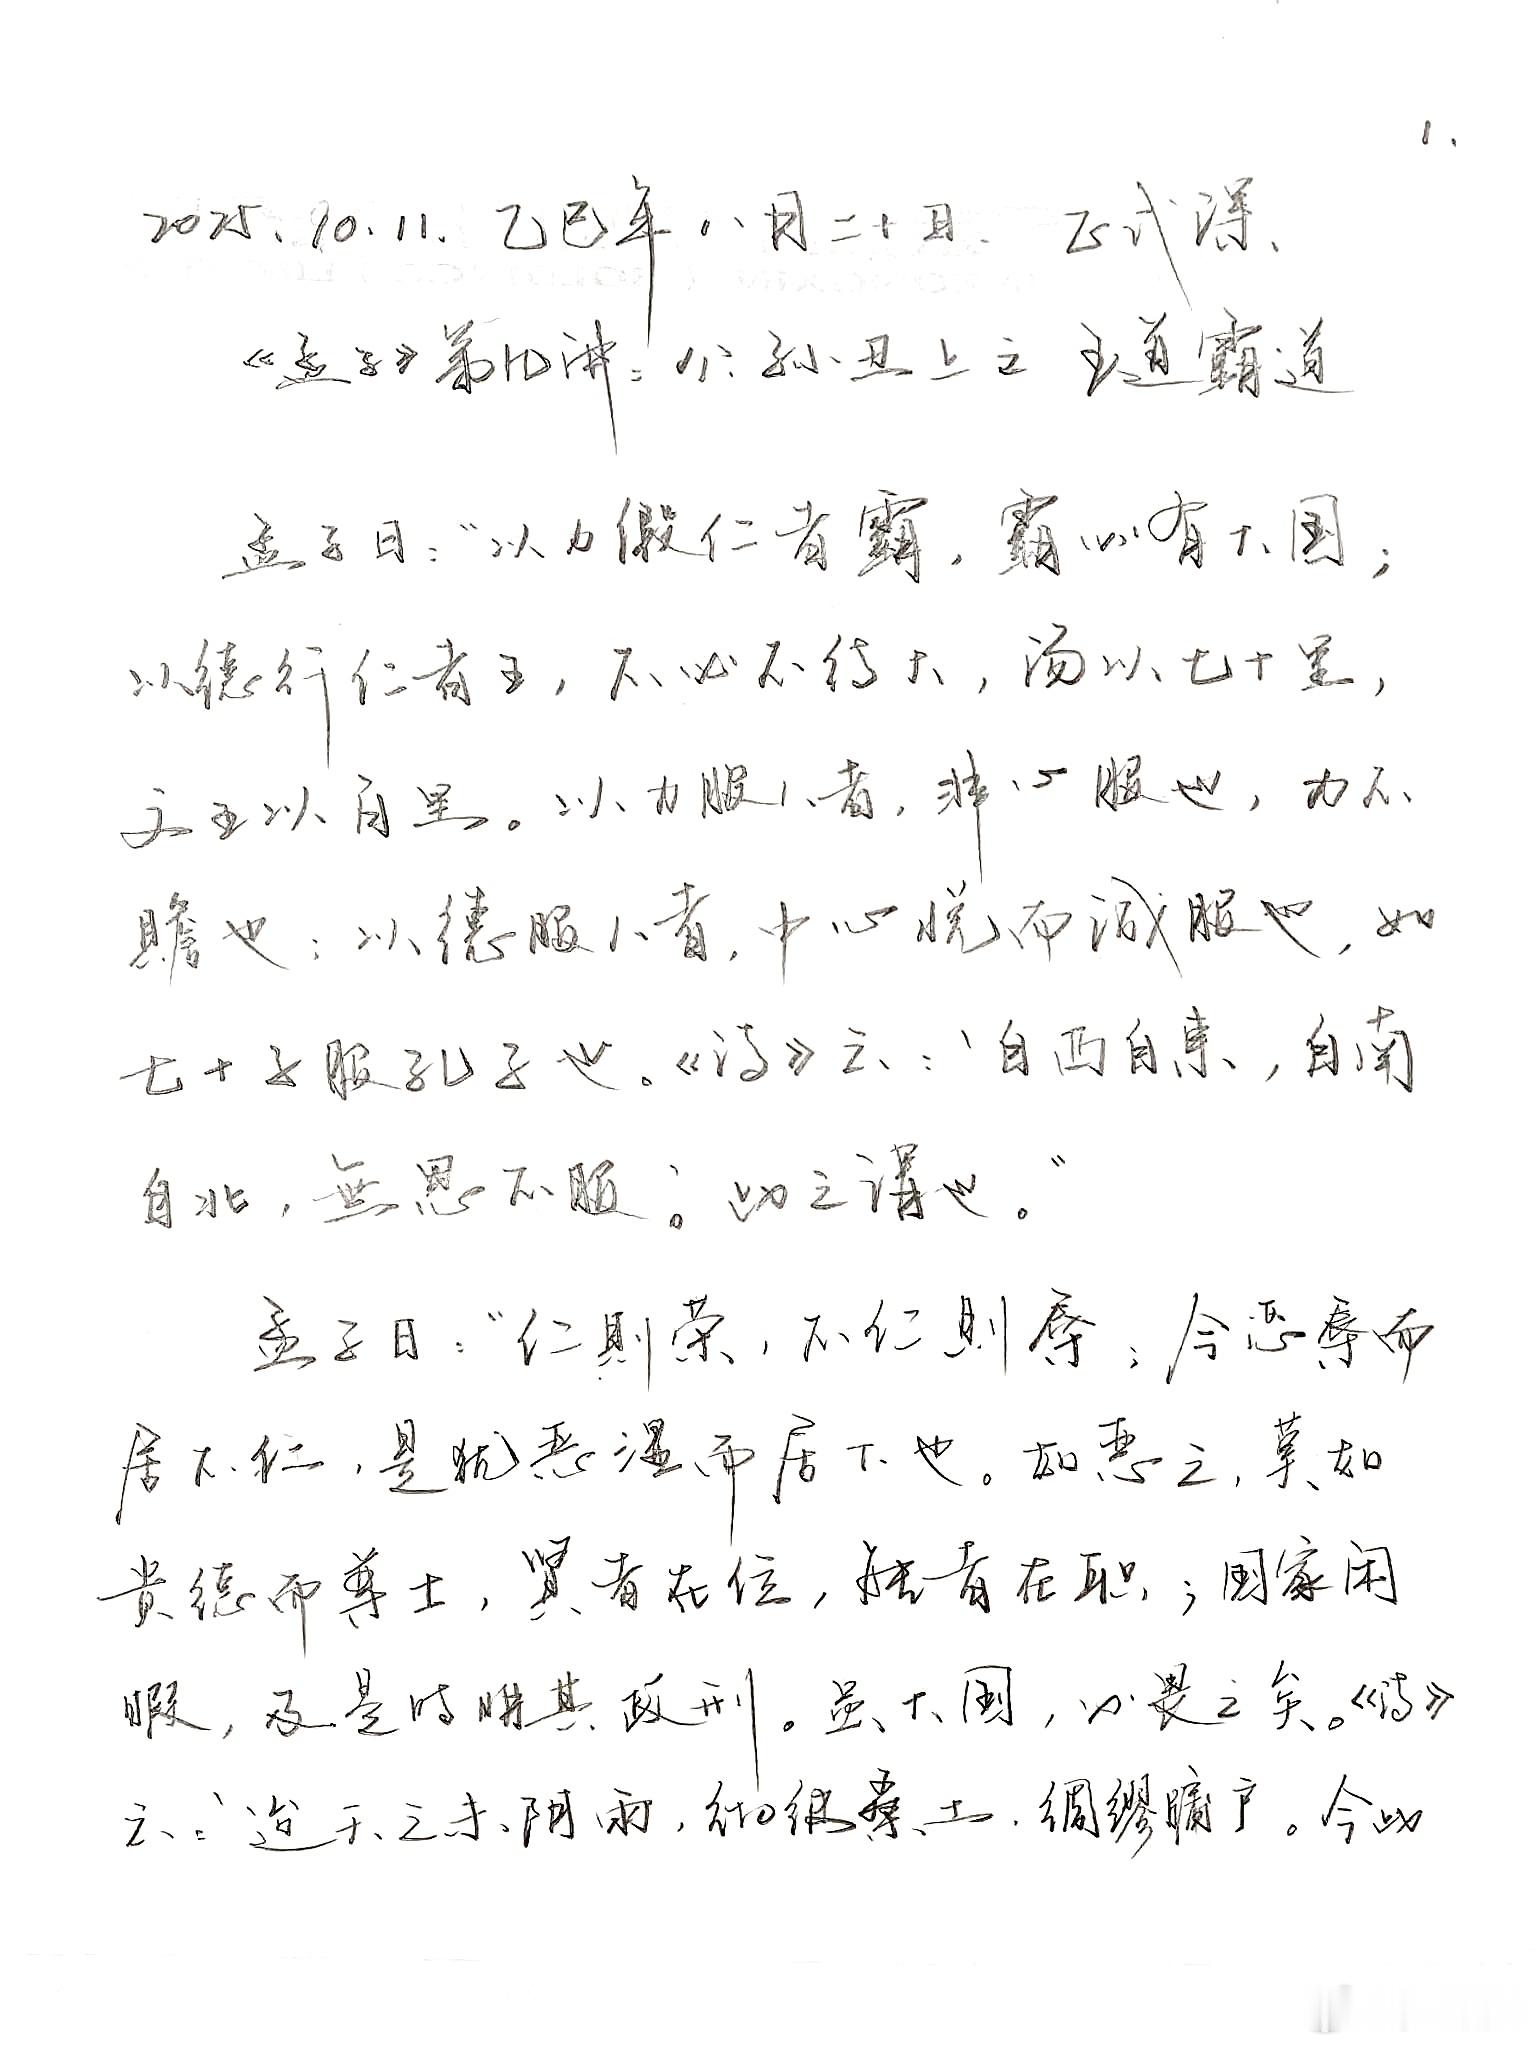 1.
2025.10.11. 乙巳年八月二十日. 正式课.
《孟子》第九讲：公孙丑上之 王道霸道
孟子曰：“以力假仁者霸，霸必有大国；
以德行仁者王，不必不待大，汤以七十里，
文王以百里。以力服人者，非心服也，力不
贍也；以德服人者，中心悦而诚服也，如
七十子服孔子也。《诗》云：‘自西自東，自南
自北，無思不服’。此之謂也。”
孟子曰：“仁則荣，不仁則辱；今恶辱而
居不仁，是犹恶湿而居下也。如恶之，莫如
贵德而尊士，贤者在位，能者在职；国家闲
暇，及是时明其政刑。虽大国，必畏之矣。《诗》
云：‘迨天之未阴雨，彻彼桑土，绸缪牖户。今此